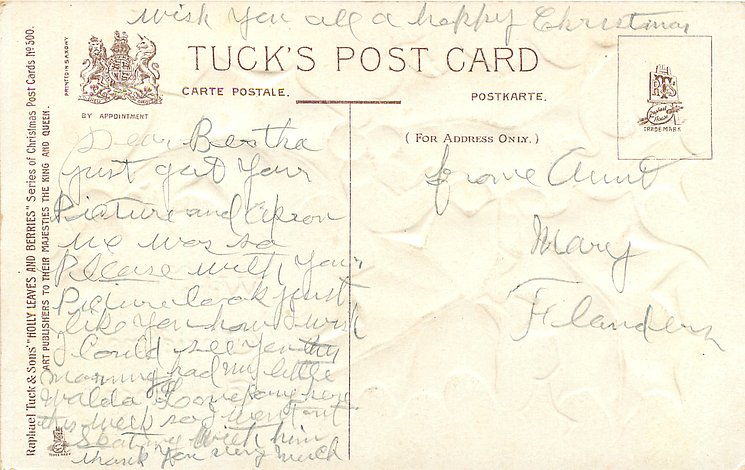 wish you all a happy Christmas
TUCK'S POST CARD
CARTE POSTALE.
POSTKARTE.
PRINTED IN SAXONY
BY APPOINTMENT
(FOR ADDRESS ONLY.)
TRADE MARK
Raphael Tuck & Sons' "HOLLY LEAVES AND BERRIES" Series of Christmas Post Cards No 500.
ART PUBLISHERS TO THEIR MAJESTIES THE KING AND QUEEN.
Dear Bertha
just got your
Picture and Apron
we was so
Please with your
Picture look just
like you how I wish
I Could see you this
morning had my little
Walda
this week so went out
Skating with him
thank you very much
frome Aunt
Mary
Flanders